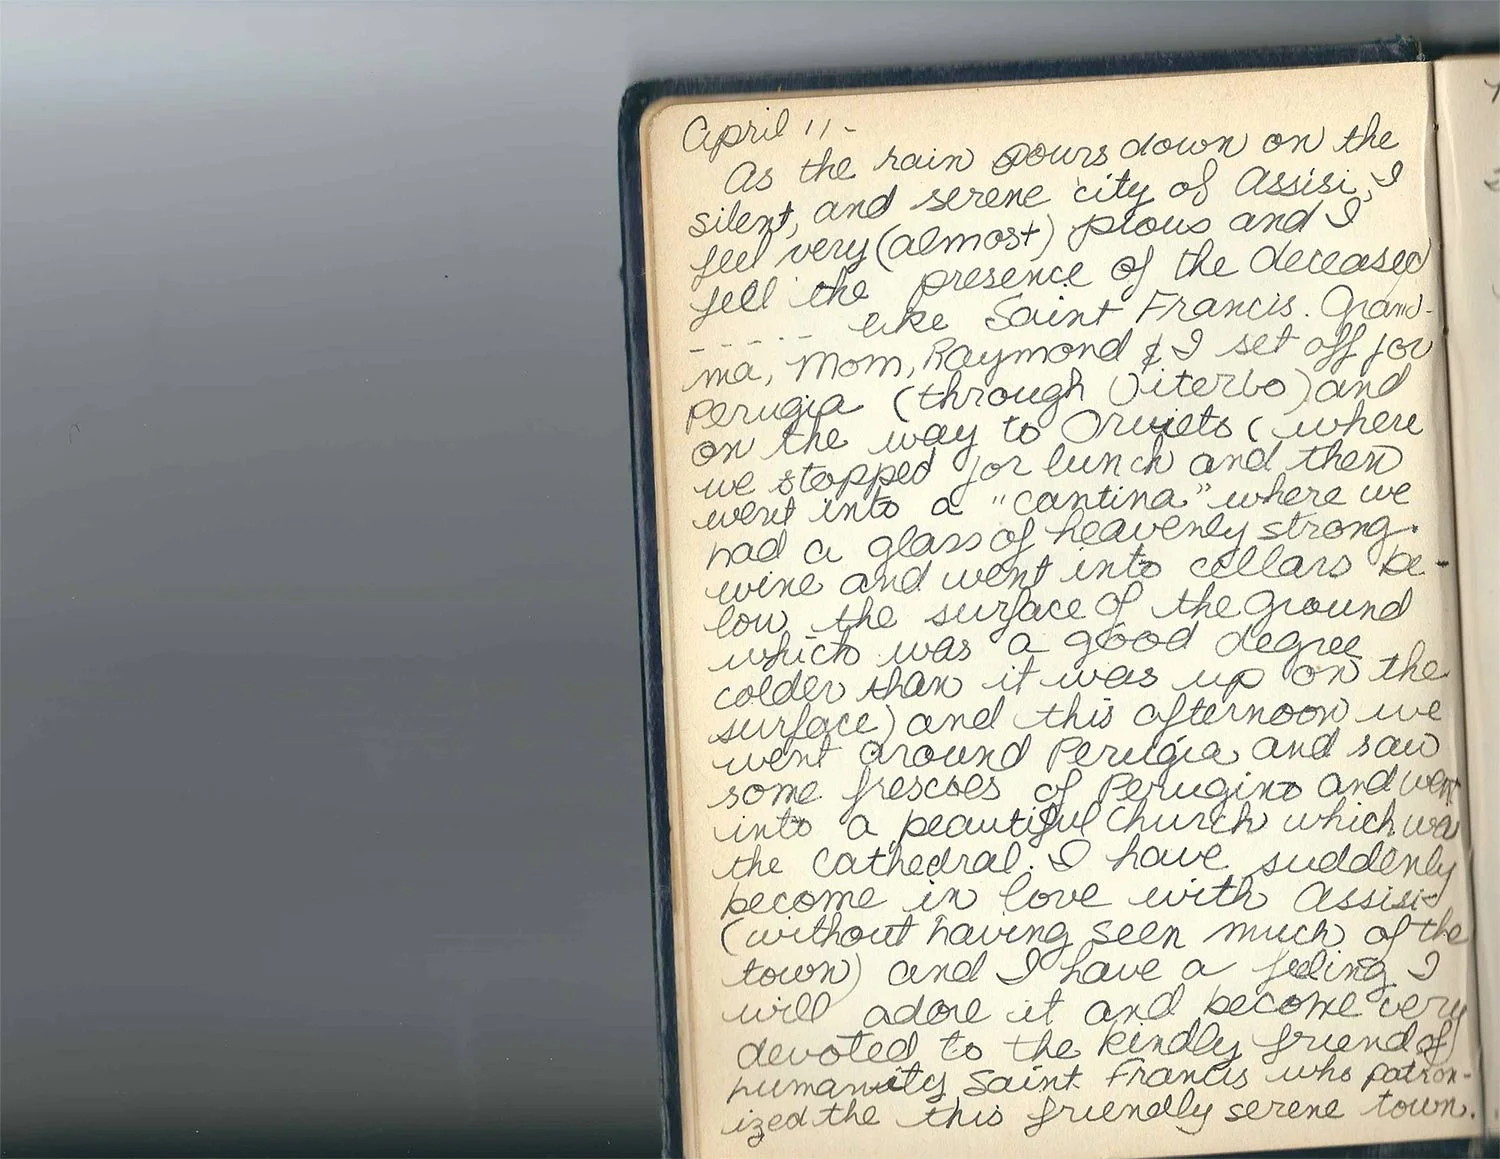 April 11 -
As the rain pours down on the
silent, and serene city of Assisi, I
feel very (almost) pious and I
fell the presence of the deceased
- - - - - like Saint Francis. Grand-
ma, Mom, Raymond & I set off for
Perugia (through Viterbo) and
on the way to Orvieto (where
we stopped for lunch and then
went into a "cantina" where we
had a glass of heavenly strong
wine and went into cellars be-
low the surface of the ground
which was a good degree
colder than it was up on the
surface) and this afternoon we
went around Perugia and saw
some frescoes of Perugino and went
into a beautiful church which was
the cathedral. I have suddenly
become in love with Assisi
(without having seen much of the
town) and I have a feeling I
will adore it and become very
devoted to the kindly friend of
humanity Saint Francis who patron-
ized the this friendly serene town.